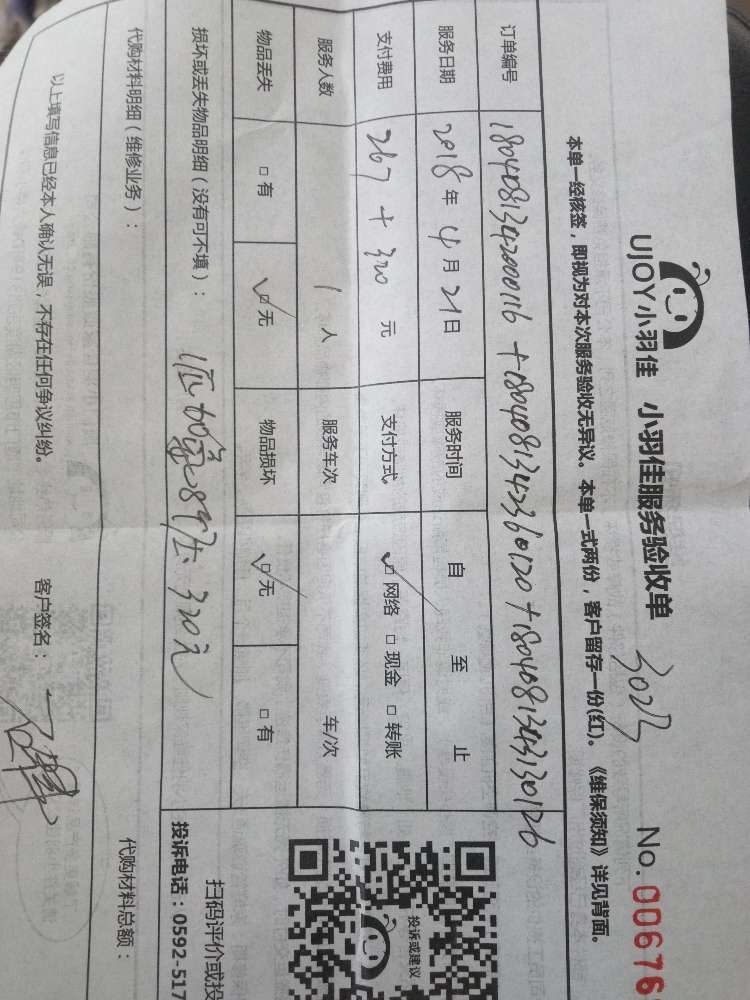 UJOY小羽佳 小羽佳服务验收单 3023 No. 00676
本单一经核签，即视为对本次服务验收无异议。本单一式两份，客户留存一份(红)。《维保须知》详见背面。
订单编号 1804081342000116 + 1804081342360120 + 1804081343130126
服务日期 2018年 4月 21日 服务时间 自 至 止
支付费用 267 + 320 元 支付方式 □ 网络 □ 现金 □ 转账
服务人数 1 人 服务车次 车/次
物品丢失 □ 有 □ 无 物品损坏 □ 无 □ 有
损坏或丢失物品明细（没有可不填）： 1匹加氟8个压 320元
代购材料明细（维修业务）： 代购材料总额：
以上填写信息已经本人确认无误，不存在任何争议纠纷。 客户签名：
投诉或建议
扫码评价或投
投诉电话：0592-517